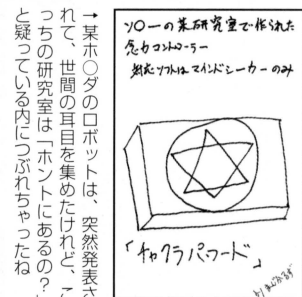 ソ○ーの某研究室で作られた
念力コントローラー
対応ソフトはマインドシーカーのみ
「チャクラパワード」
→某ホ○ダのロボットは、突然発表さ
れて、世間の耳目を集めたけれど、こ
っちの研究室は「ホントにあるの?」
と疑っている内につぶれちゃったね